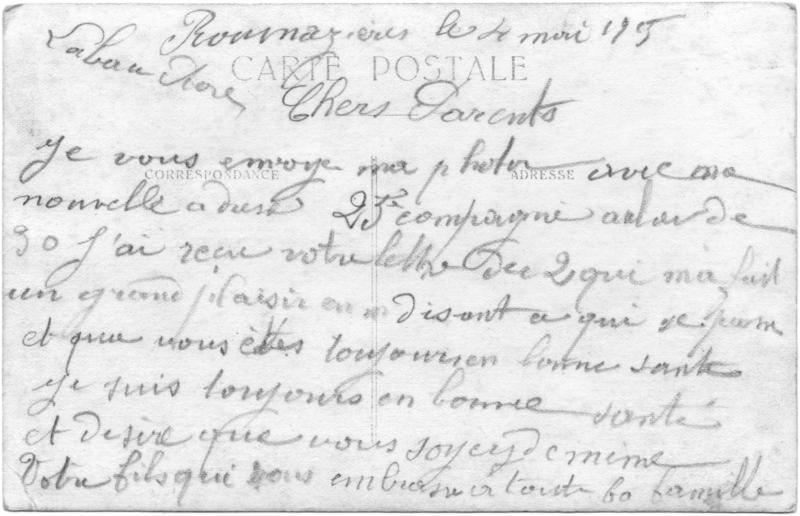 Roumazières le 4 mai 1915
CARTE POSTALE
Chers Parents
Je vous envoye ma photo avec ma
CORRESPONDANCE
ADRESSE
nouvelle adress 25e compagnie au lieu de
30 J'ai recu votre lettre du 2 qui m'a fait
un grand plaisir en m disant a qui se passe
et que vous êtes toujours en bonne sante
Je suis toujours en bonne santé
et desire que vous soyez de mime
Votre fils qui vous embrasse toute la famille